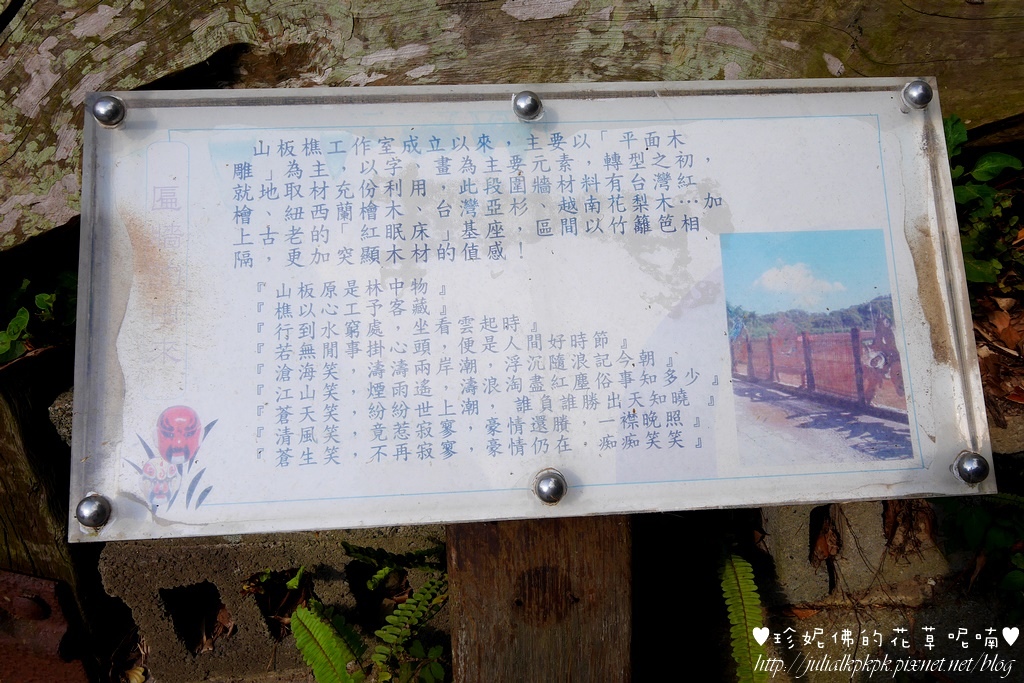 山板樵工作室成立以來，主要以「平面木
雕」為主，以字、畫為主要元素，轉型之初，
就地取材充份利用，此段圍牆材料有台灣紅
檜、紐西蘭檜木、台灣亞杉、越南花梨木…加
上古老的「紅眠床」基座，區間以竹籬笆相
隔，更加突顯木材的值感！
『山板原是林中物』
『樵以心工予客藏』
『行到水窮處，坐看雲起時』
『若無閒事掛心頭，便是人間好時節』
『滄海笑，濤濤兩岸潮，浮沉隨浪記今朝』
『江山笑，煙雨遙，濤浪淘盡紅塵俗事知多少』
『蒼天笑，紛紛世上潮，誰負誰勝出天知曉』
『清風笑，竟惹寂寥，豪情還賸，一襟晚照』
『蒼生笑，不再寂寥，豪情仍在，痴痴笑笑』
匾牆
♥珍妮佛的花草呢喃♥
http://julialkpkpk.pixnet.net/blog